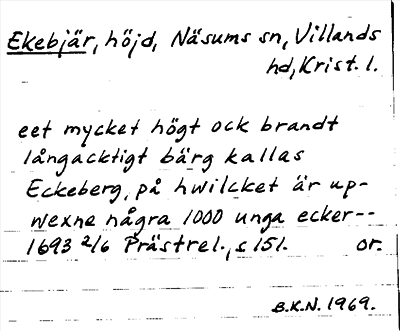 Ekebjär, höjd, Näsums sn, Villands
hd, Krist. l.
eet mycket högt ock brandt
långacktigt bärg kallas
Eckeberg, på hwilcket är up-
wexne några 1000 unga ecker--
1693 2/6 Prästrel., s 151. or.
B.K.N. 1969.